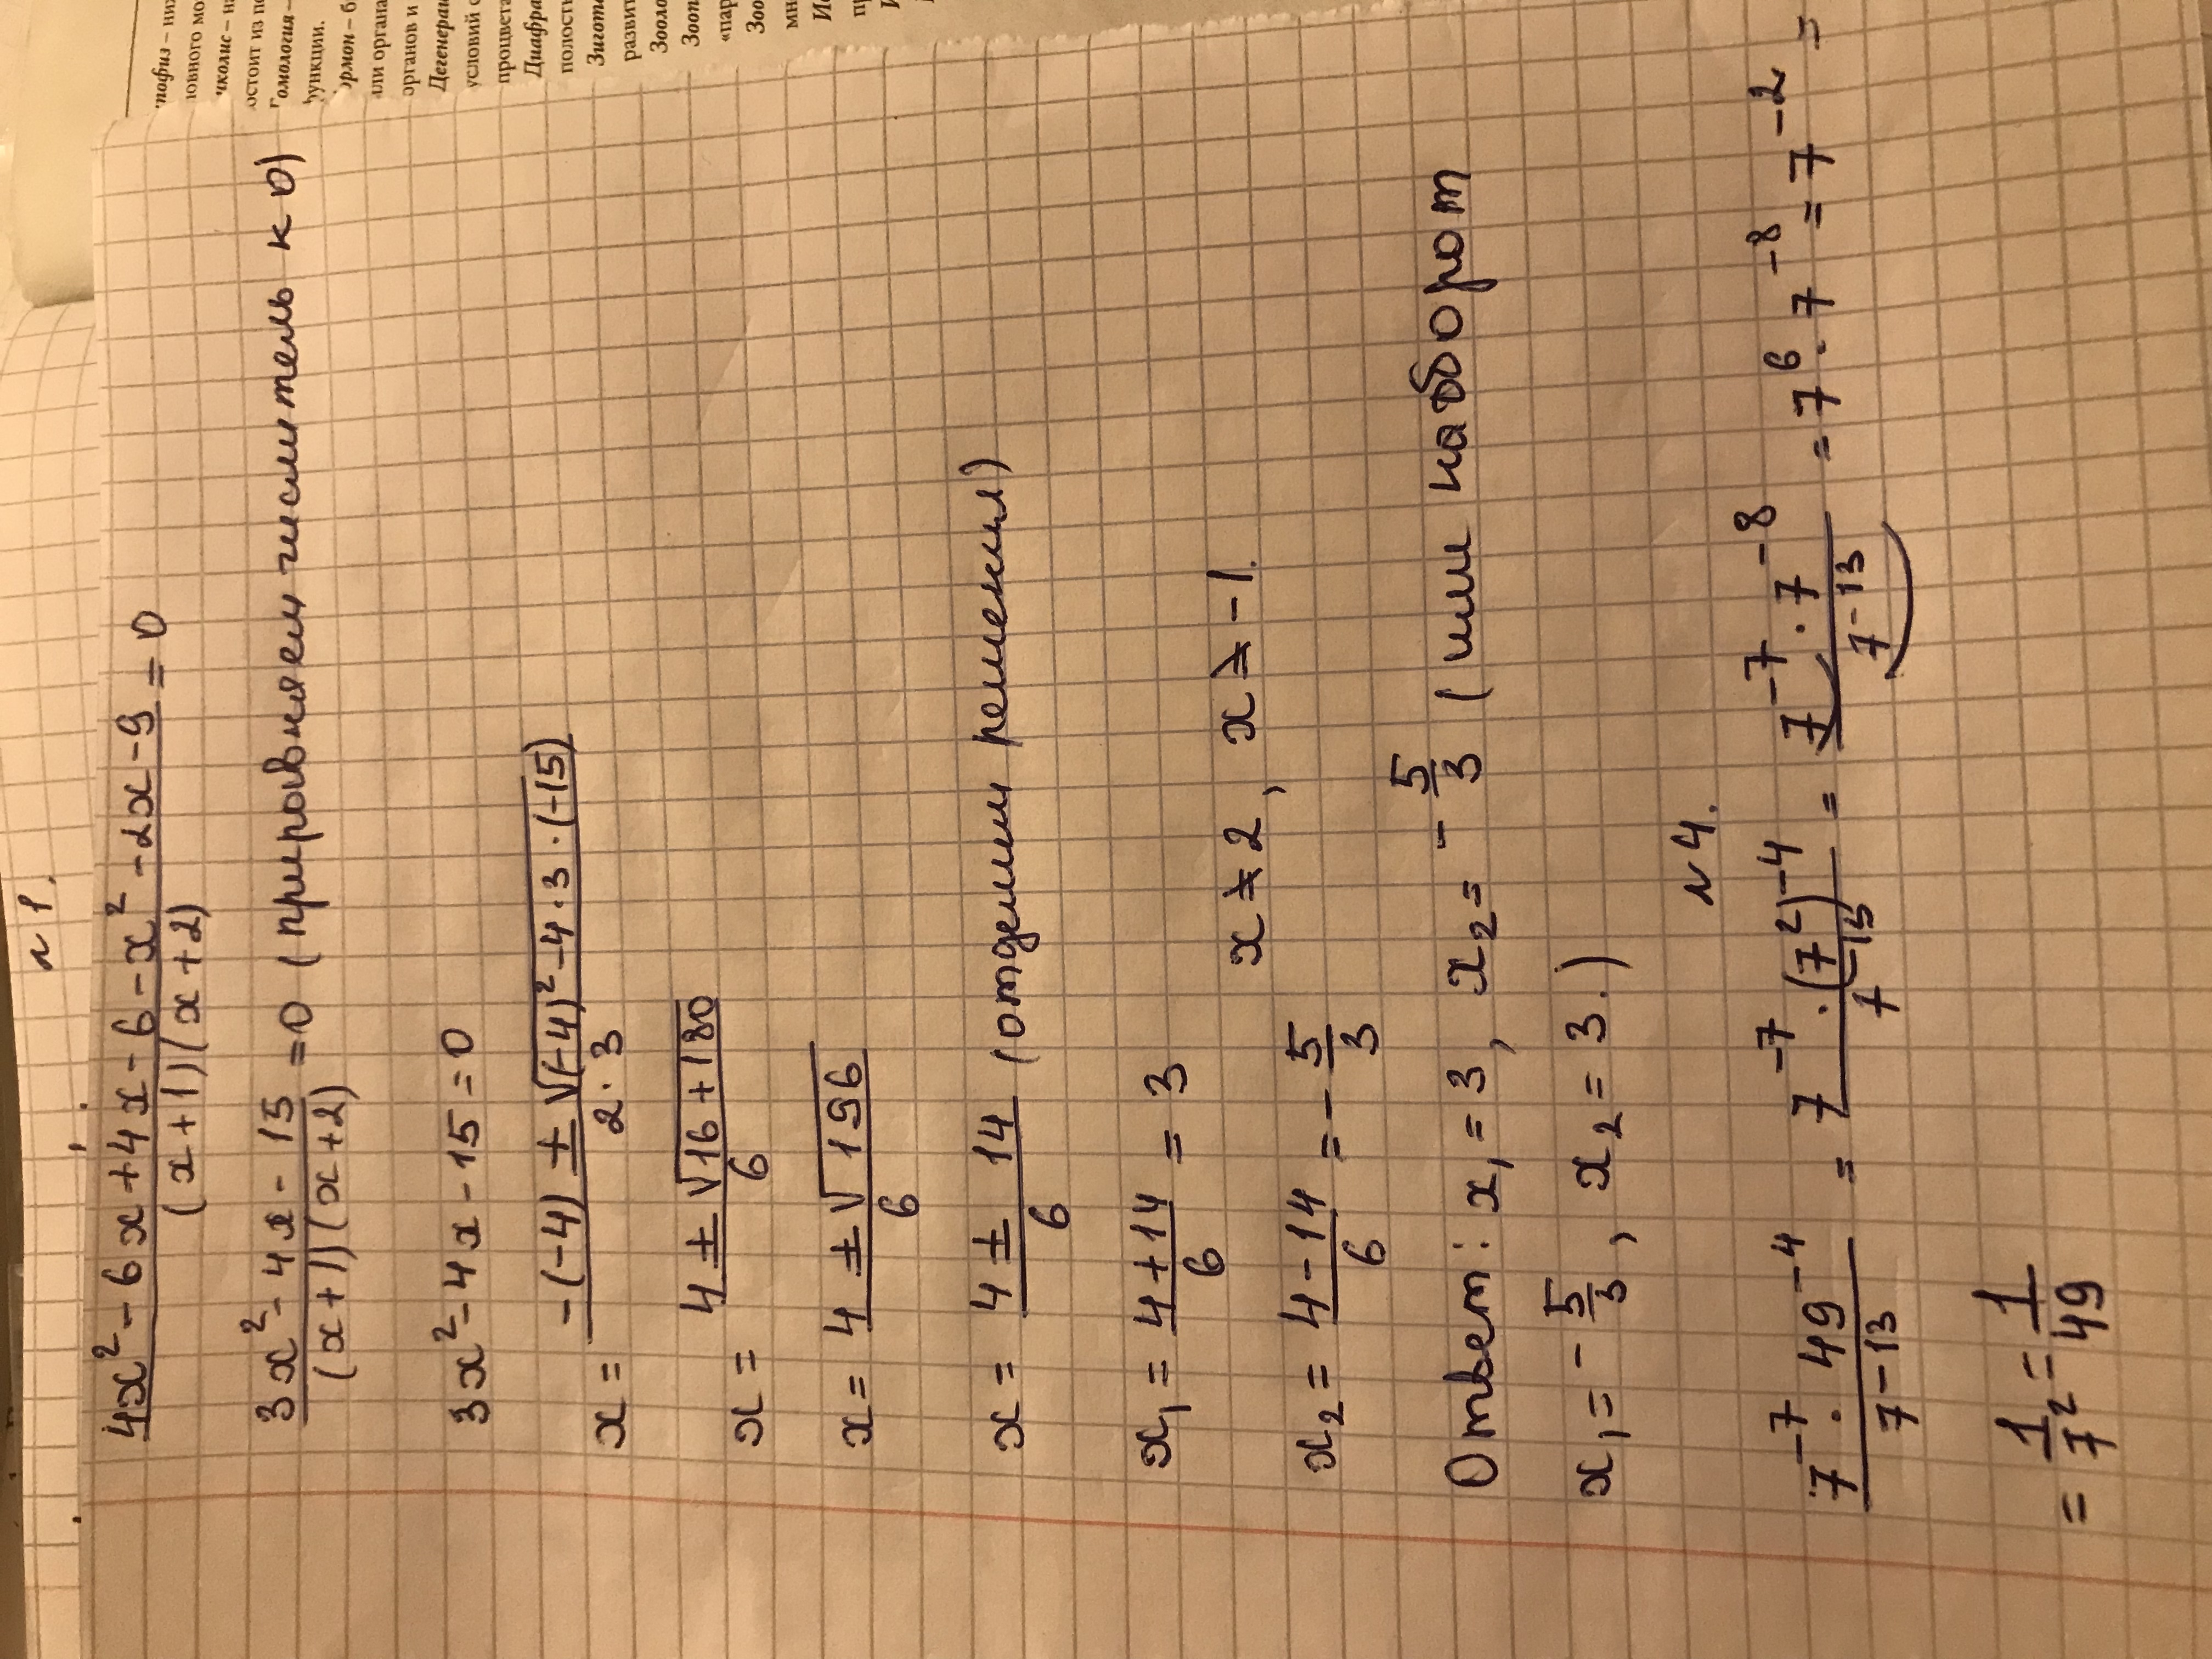 N 1.
4x² - 6x + 4x - 6 - x² - 2x - 9 / (x+1)(x+2) = 0
3x² - 4x - 15 / (x+1)(x+2) = 0 (приравняем числитель к 0)
3x² - 4x - 15 = 0
x = -(-4) ± √(-4)² - 4 · 3 · (-15) / 2 · 3
x = 4 ± √16 + 180 / 6
x = 4 ± √196 / 6
x = 4 ± 14 / 6 (отделим решения)
x₁ = 4 + 14 / 6 = 3
x ≠ 2, x ≠ -1.
x₂ = 4 - 14 / 6 = - 5/3
Ответ: x₁ = 3, x₂ = - 5/3 (или наоборот
x₁ = - 5/3, x₂ = 3.)
N 4.
7⁻⁷ · 49⁻⁴ / 7⁻¹³ = 7⁻⁷ · (7²)⁻⁴ / 7⁻¹³ = 7⁻⁷ · 7⁻⁸ / 7⁻¹³ = 7⁶ · 7⁻⁸ = 7⁻² =
= 1/7² = 1/49
тофиз – ни
новного мо
чколис – н
остоит из п
Гомология –
функции.
ормон – б
или орган
органов и
Дегенерац
условий с
процвета
Диафра
полость
Зигот
развит
Зооло
Зооп
«пар
Зоо
мн
Ис